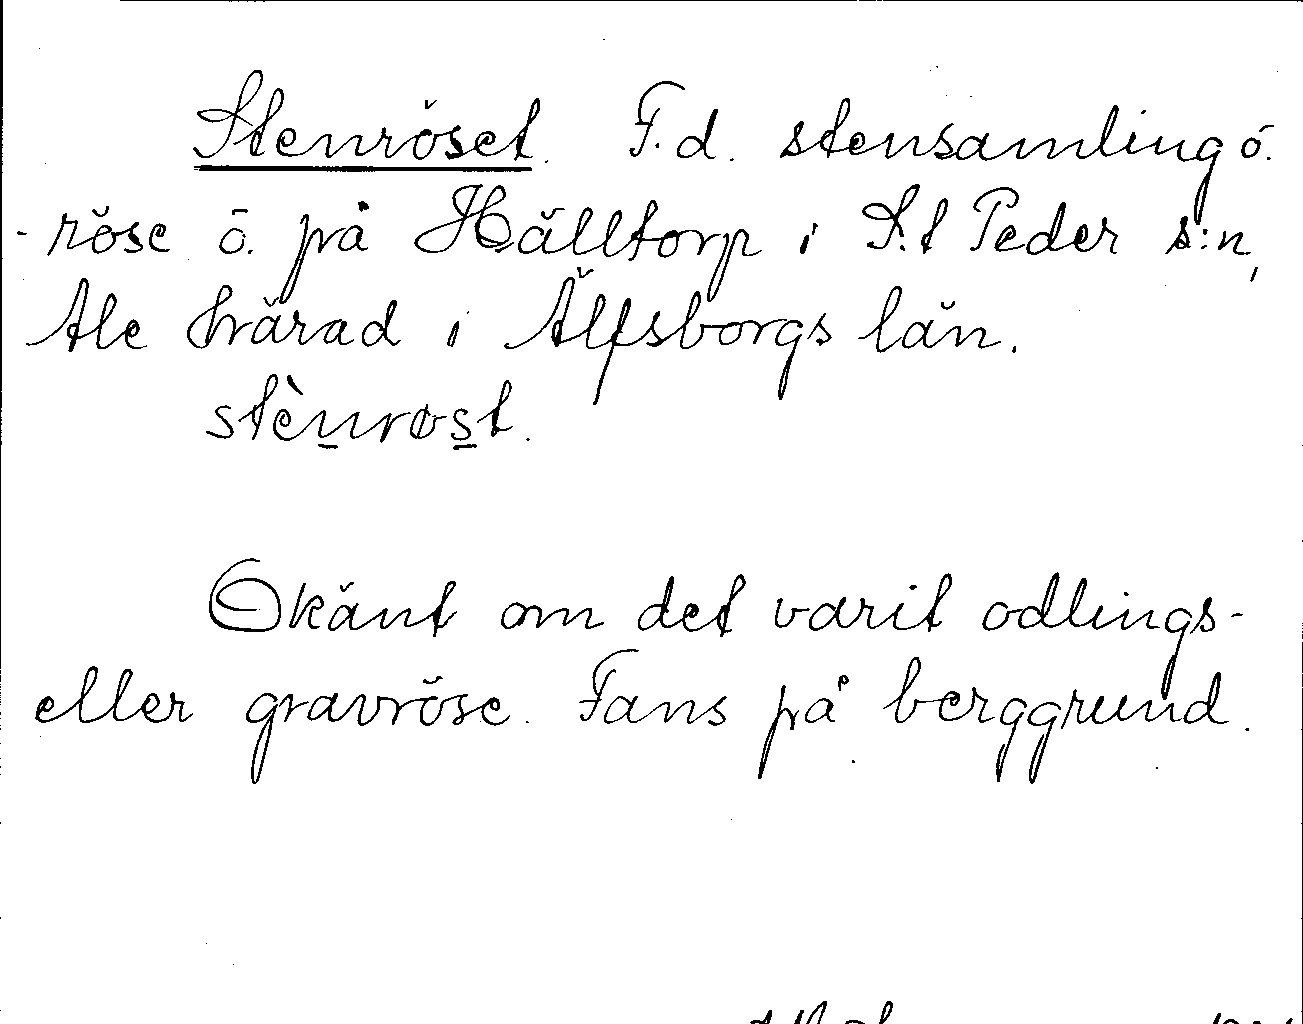 Stenröset. F.d. stensamling ö.
-röse ö. på Hälltorp i S:t Peder s:n,
Ale härad i Älfsborgs län.
stènrøst.
Okänt om det varit odlings-
eller gravröse. Fans på berggrund.